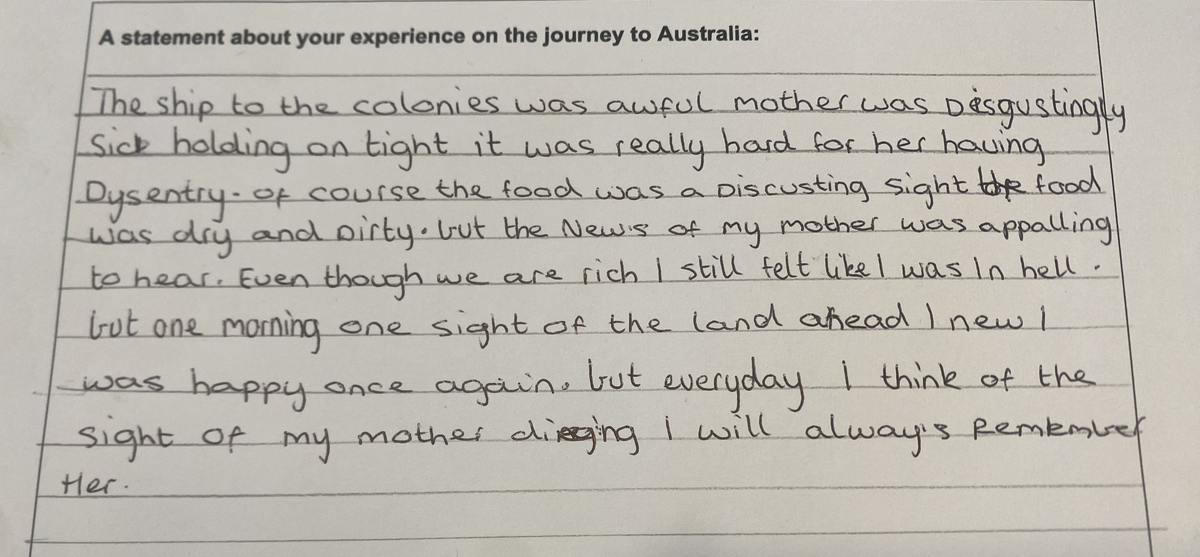 A statement about your experience on the journey to Australia:
The ship to the colonies was awful mother was Disgustingly
Sick holding on tight it was really hard for her having
Dysentry. of course the food was a Discusting sight the food
was dry and Dirty. but the News of my mother was appalling
to hear. Even though we are rich I still felt like I was In hell.
but one morning one sight of the land ahead I new I
was happy once again. but everyday I think of the
sight of my mother dieing I will always Remember
Her.